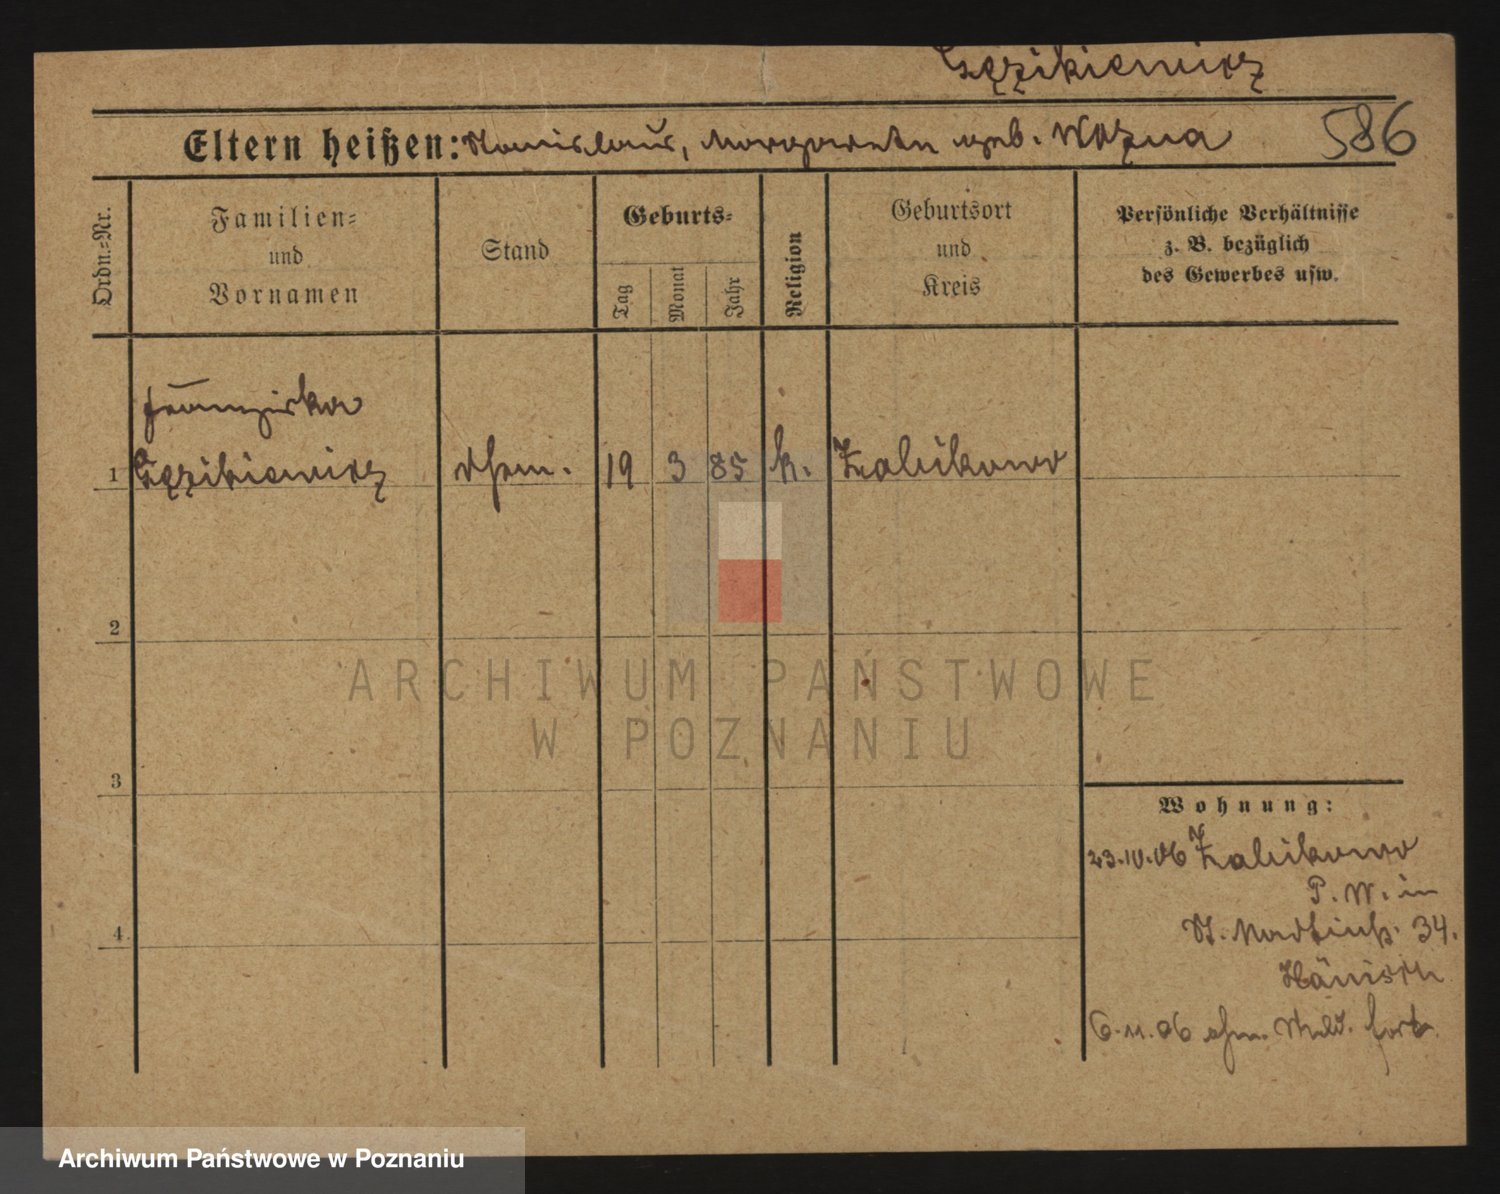 Gęzikiewicz
Eltern heißen: Stanislaus, Margareta geb. Wozna 586
Ordn.=Nr.
Familien=
und
Vornamen
Stand
Geburts=
Tag
Monat
Jahr
Religion
Geburtsort
und
Kreis
Persönliche Verhältnisse
z. B. bezüglich
des Gewerbes usw.
Franziska
1 Gęzikiewicz 19 3 85 k. Zabikowo
2
3
4
Wohnung:
23.10.06 Zabikowo
P. W. in
St. Martinstr. 34.
Hänisch
6.11.06 ohne Meld. fort.
ARCHIWUM PAŃSTWOWE
W POZNANIU
Archiwum Państwowe w Poznaniu